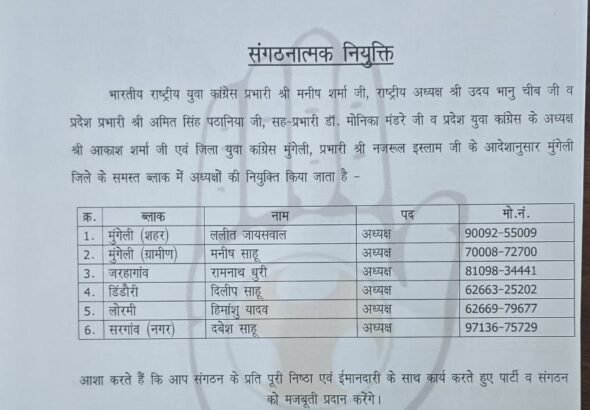 संगठनात्मक नियुक्ति
भारतीय राष्ट्रीय युवा कांग्रेस प्रभारी श्री मनीष शर्मा जी, राष्ट्रीय अध्यक्ष श्री उदय भानु चीब जी व
प्रदेश प्रभारी श्री अमित सिंह पठानिया जी, सह-प्रभारी डॉ. मोनिका मंडरे जी व प्रदेश युवा कांग्रेस के अध्यक्ष
श्री आकाश शर्मा जी एवं जिला युवा कांग्रेस मुंगेली, प्रभारी श्री नजरूल इस्लाम जी के आदेशानुसार मुंगेली
जिले के समस्त ब्लाक में अध्यक्षों की नियुक्ति किया जाता है –
क्र. ब्लाक नाम पद मो.नं.
1. मुंगेली (शहर) ललीत जायसवाल अध्यक्ष 90092-55009
2. मुंगेली (ग्रामीण) मनीष साहू अध्यक्ष 70008-72700
3. जरहागांव रामनाथ धुरी अध्यक्ष 81098-34441
4. डिंडौरी दिलीप साहू अध्यक्ष 62663-25202
5. लोरमी हिमांशु यादव अध्यक्ष 62669-79677
6. सरगांव (नगर) दबेश साहू अध्यक्ष 97136-75729
आशा करते हैं कि आप संगठन के प्रति पूरी निष्ठा एवं ईमानदारी के साथ कार्य करते हुए पार्टी व संगठन
को मजबूती प्रदान करेंगे।